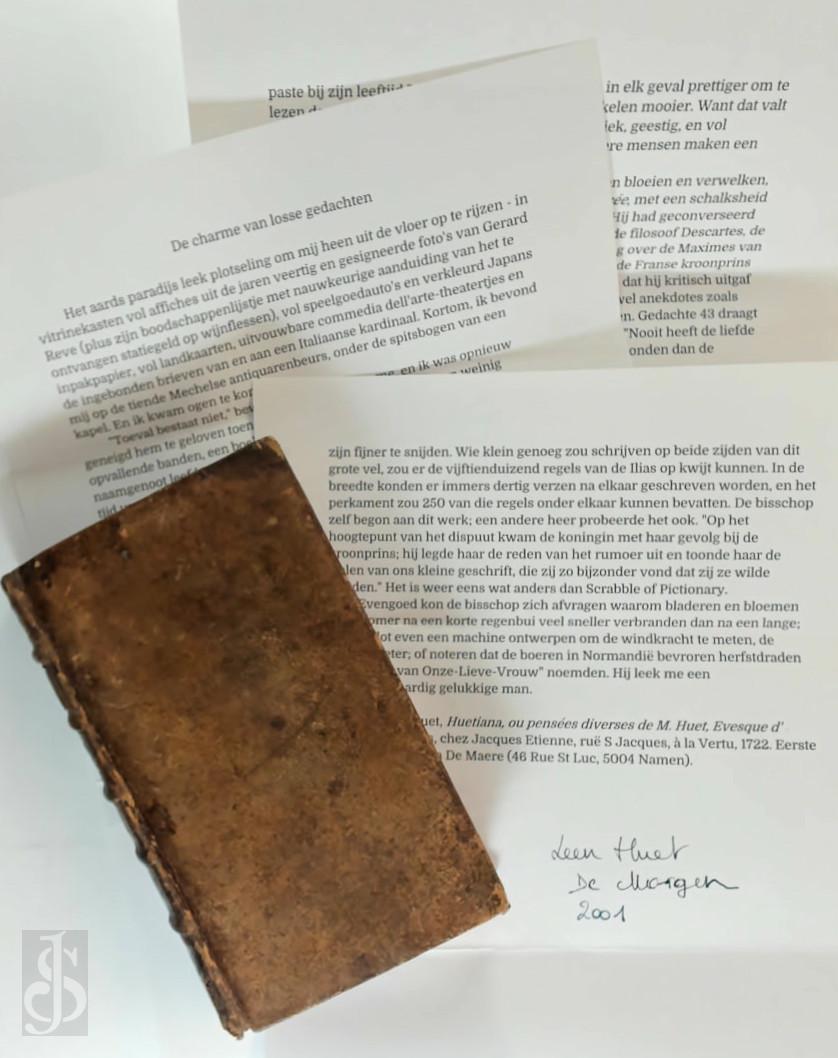 paste bij zijn leeftijd
lezen
in elk geval prettiger om te
kelen mooier. Want dat valt
iek, geestig, en vol
re mensen maken een
n bloeien en verwelken,
ée, met een schalksheid
Hij had geconverseerd
de filosoof Descartes, de
g over de Maximes van
de Franse kroonprins
dat hij kritisch uitgaf
vel anekdotes zoals
n. Gedachte 43 draagt
"Nooit heeft de liefde
onden dan de
De charme van losse gedachten
Het aards paradijs leek plotseling om mij heen uit de vloer op te rijzen - in
vitrinekasten vol affiches uit de jaren veertig en gesigneerde foto's van Gerard
Reve (plus zijn boodschappenlijstje met nauwkeurige aanduiding van het te
ontvangen statiegeld op wijnflessen), vol speelgoedauto's en verkleurd Japans
inpakpapier, vol landkaarten, uitvouwbare commedia dell'arte-theatertjes en
de ingebonden brieven van en aan een Italiaanse kardinaal. Kortom, ik bevond
mij op de tiende Mechelse antiquarenbeurs, onder de spitsbogen van een
kapel. En ik kwam ogen te kor
en ik was opnieuw
"Toeval bestaat niet," bev
weinig
geneigd hem te geloven toen
opvallende banden, een boe
naamgenoot leef
tijd
zijn fijner te snijden. Wie klein genoeg zou schrijven op beide zijden van dit
grote vel, zou er de vijftienduizend regels van de Ilias op kwijt kunnen. In de
breedte konden er immers dertig verzen na elkaar geschreven worden, en het
perkament zou 250 van die regels onder elkaar kunnen bevatten. De bisschop
zelf begon aan dit werk; een andere heer probeerde het ook. "Op het
hoogtepunt van het dispuut kwam de koningin met haar gevolg bij de
roonprins; hij legde haar de reden van het rumoer uit en toonde haar de
len van ons kleine geschrift, die zij zo bijzonder vond dat zij ze wilde
den." Het is weer eens wat anders dan Scrabble of Pictionary.
Evengoed kon de bisschop zich afvragen waarom bladeren en bloemen
omer na een korte regenbui veel sneller verbranden dan na een lange;
ot even een machine ontwerpen om de windkracht te meten, de
eter; of noteren dat de boeren in Normandië bevroren herfstdraden
van Onze-Lieve-Vrouw" noemden. Hij leek me een
ardig gelukkige man.
uet, Huetiana, ou pensées diverses de M. Huet, Evesque d'
, chez Jacques Etienne, ruë S Jacques, à la Vertu, 1722. Eerste
De Maere (46 Rue St Luc, 5004 Namen).
Leen Huet
De Morgen
2001